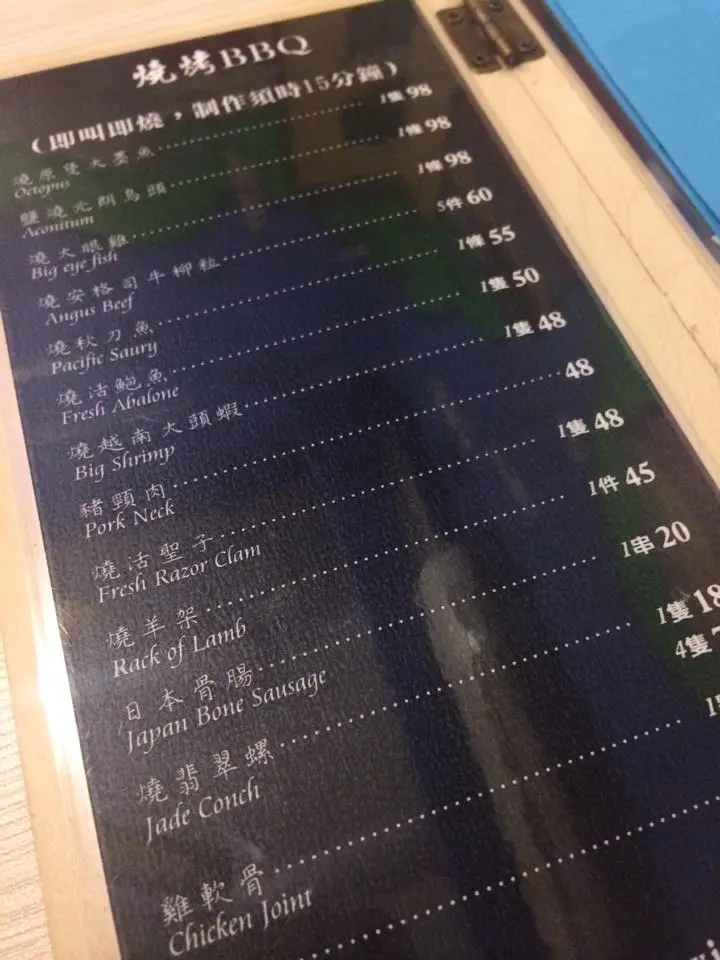 燒烤BBQ
（即叫即燒，制作須時15分鐘）
燒原隻大墨魚 1隻 98
Octopus
鹽燒元朗烏頭 1條 98
Aconitum
燒大眼雞 1條 98
Big eye fish
燒安格司牛柳粒 5件 60
Angus Beef
燒秋刀魚 1條 55
Pacific Saury
燒活鮑魚 1隻 50
Fresh Abalone
燒越南大頭蝦 1隻 48
Big Shrimp
豬頸肉 48
Pork Neck
燒活聖子 1隻 48
Fresh Razor Clam
燒羊架 1件 45
Rack of Lamb
日本骨腸 1串 20
Japan Bone Sausage
燒翡翠螺 1隻 18
4隻
Jade Conch
雞軟骨
Chicken Joint